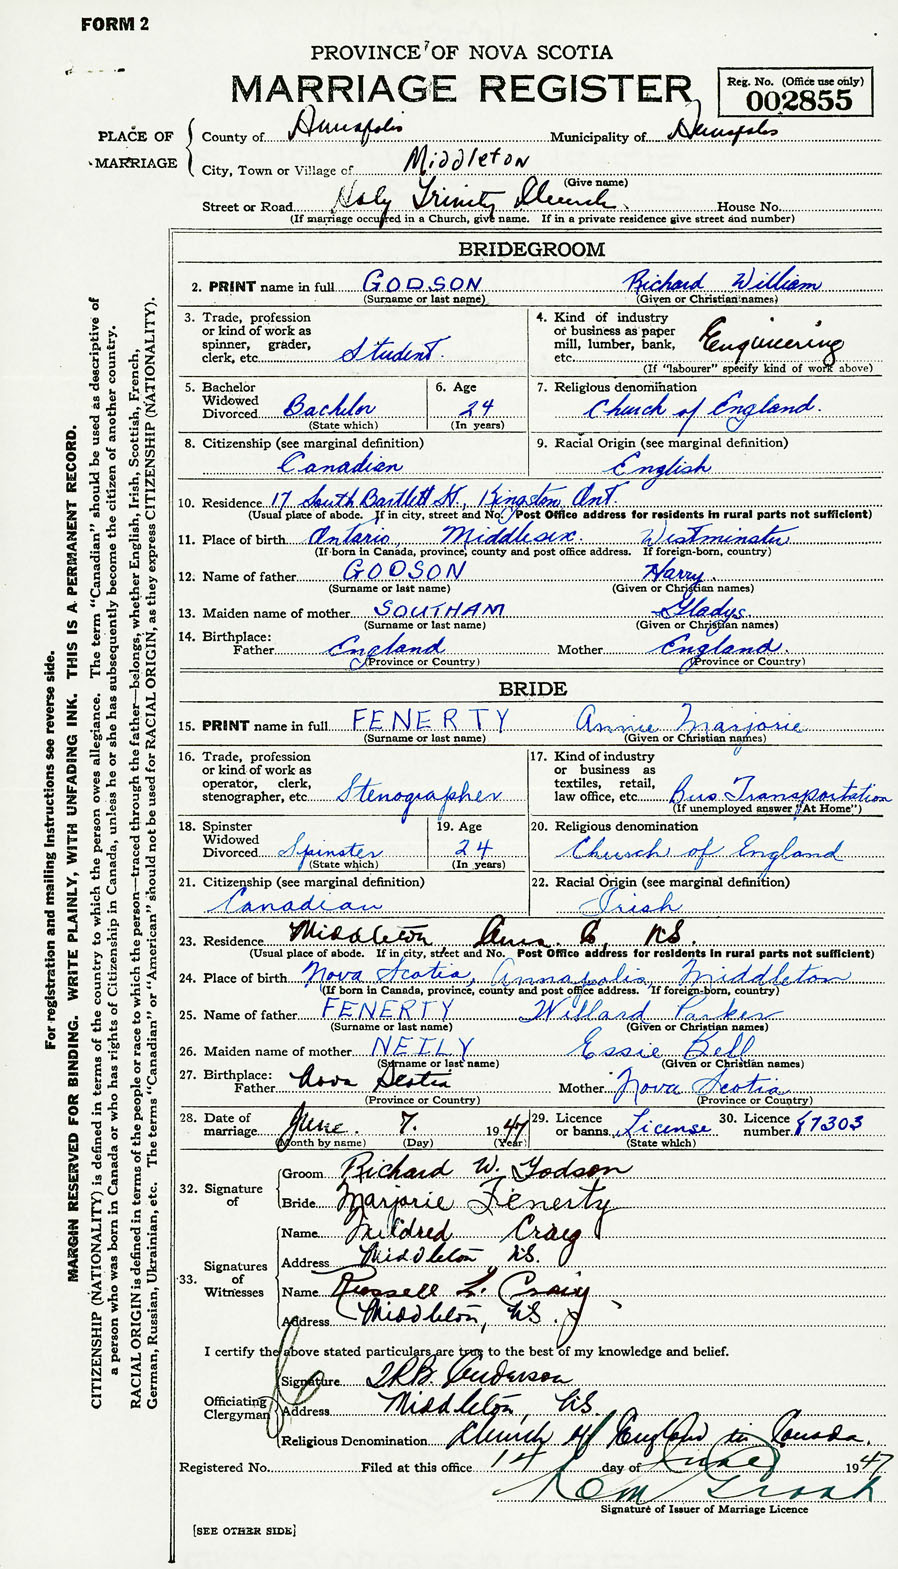 FORM 2
PROVINCE OF NOVA SCOTIA
MARRIAGE REGISTER
Reg. No. (Office use only)
002855
PLACE OF MARRIAGE
County of Annapolis Municipality of Annapolis
City, Town or Village of Middleton
(Give name)
Street or Road Holy Trinity Church House No.
(If marriage occurred in a Church, give name. If in a private residence give street and number)
BRIDEGROOM
2. PRINT name in full GODSON Richard William
(Surname or last name) (Given or Christian names)
3. Trade, profession or kind of work as spinner, grader, clerk, etc. Student
4. Kind of industry or business as paper mill, lumber, bank, etc. Engineering
(If "labourer" specify kind of work above)
5. Bachelor Widowed Divorced Bachelor
(State which)
6. Age 24
(In years)
7. Religious denomination
Church of England.
8. Citizenship (see marginal definition)
Canadian
9. Racial Origin (see marginal definition)
English
10. Residence 17 South Bartlett St., Kingston Ont.
(Usual place of abode. If in city, street and No. Post Office address for residents in rural parts not sufficient)
11. Place of birth Ontario, Middlesex. Westminster
(If born in Canada, province, county and post office address. If foreign-born, country)
12. Name of father GODSON Harry.
(Surname or last name) (Given or Christian names)
13. Maiden name of mother SOUTHAM Gladys.
(Surname or last name) (Given or Christian names)
14. Birthplace:
Father England Mother England.
(Province or Country) (Province or Country)
BRIDE
15. PRINT name in full FENERTY Annie Marjorie
(Surname or last name) (Given or Christian names)
16. Trade, profession or kind of work as operator, clerk, stenographer, etc. Stenographer
17. Kind of industry or business as textiles, retail, law office, etc. Bus Transportation
(If unemployed answer "At Home")
18. Spinster Widowed Divorced Spinster
(State which)
19. Age 24
(In years)
20. Religious denomination
Church of England
21. Citizenship (see marginal definition)
Canadian
22. Racial Origin (see marginal definition)
Irish
23. Residence Middleton, Anna. Co, N.S.
(Usual place of abode. If in city, street and No. Post Office address for residents in rural parts not sufficient)
24. Place of birth Nova Scotia, Annapolis, Middleton
(If born in Canada, province, county and post office address. If foreign-born, country)
25. Name of father FENERTY Willard Parker
(Surname or last name) (Given or Christian names)
26. Maiden name of mother NEILY Essie Bell
(Surname or last name) (Given or Christian names)
27. Birthplace:
Father Nova Scotia Mother Nova Scotia
(Province or Country) (Province or Country)
28. Date of marriage June. 7. 1947
(Month by name) (Day) (Year)
29. Licence or banns License
(State which)
30. Licence number 87303
32. Signature of
Groom Richard W. Godson
Bride Marjorie Fenerty
33. Signatures of Witnesses
Name Mildred Craig
Address Middleton N.S.
Name Russell L. Craig
Address Middleton, N.S.
I certify the above stated particulars are true to the best of my knowledge and belief.
Officiating Clergyman
Signature Anderson
Address Middleton, N.S.
Religious Denomination Church of England in Canada.
Registered No. Filed at this office 14 day of June 1947
Signature of Issuer of Marriage Licence
[SEE OTHER SIDE]
For registration and mailing instructions see reverse side.
MARGIN RESERVED FOR BINDING. WRITE PLAINLY, WITH UNFADING INK. THIS IS A PERMANENT RECORD.
CITIZENSHIP (NATIONALITY) is defined in terms of the country to which the person owes allegiance. The term "Canadian" should be used as descriptive of
a person who was born in Canada or who has rights of Citizenship in Canada, unless he or she has subsequently become the citizen of another country.
RACIAL ORIGIN is defined in terms of the people or race to which the person—traced through the father—belongs, whether English, Irish, Scottish, French,
German, Russian, Ukrainian, etc. The terms "Canadian" or "American" should not be used for RACIAL ORIGIN, as they express CITIZENSHIP (NATIONALITY).